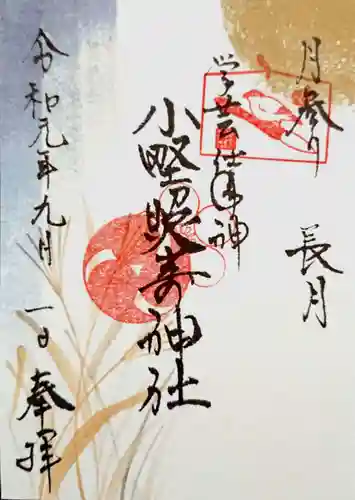 月参り
長月
学芸仕事神
小野照崎神社
令和元年九月一日
奉拝